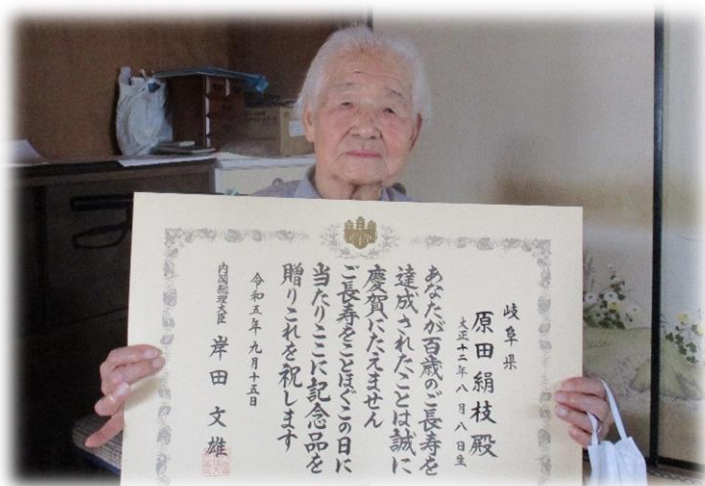 岐阜県
原田絹枝殿
大正十二年八月八日生
あなたが百歳のご長寿を
達成されたことは誠に
慶賀にたえません
ご長寿をことほぐこの日に
当たりここに記念品を
贈りこれを祝します
令和五年九月十五日
内閣総理大臣 岸田文雄